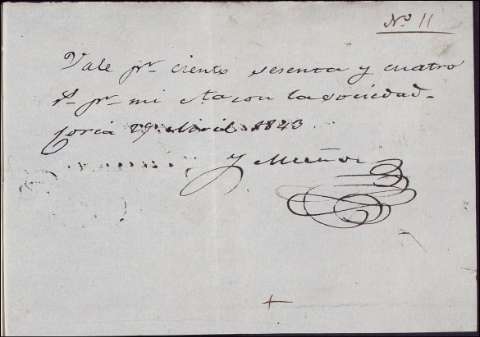 No 11
Vale pr. ciento sesenta y cuatro
pr. mi cta con la sociedad
Coria 29 Abril 1843
Y Muñoz